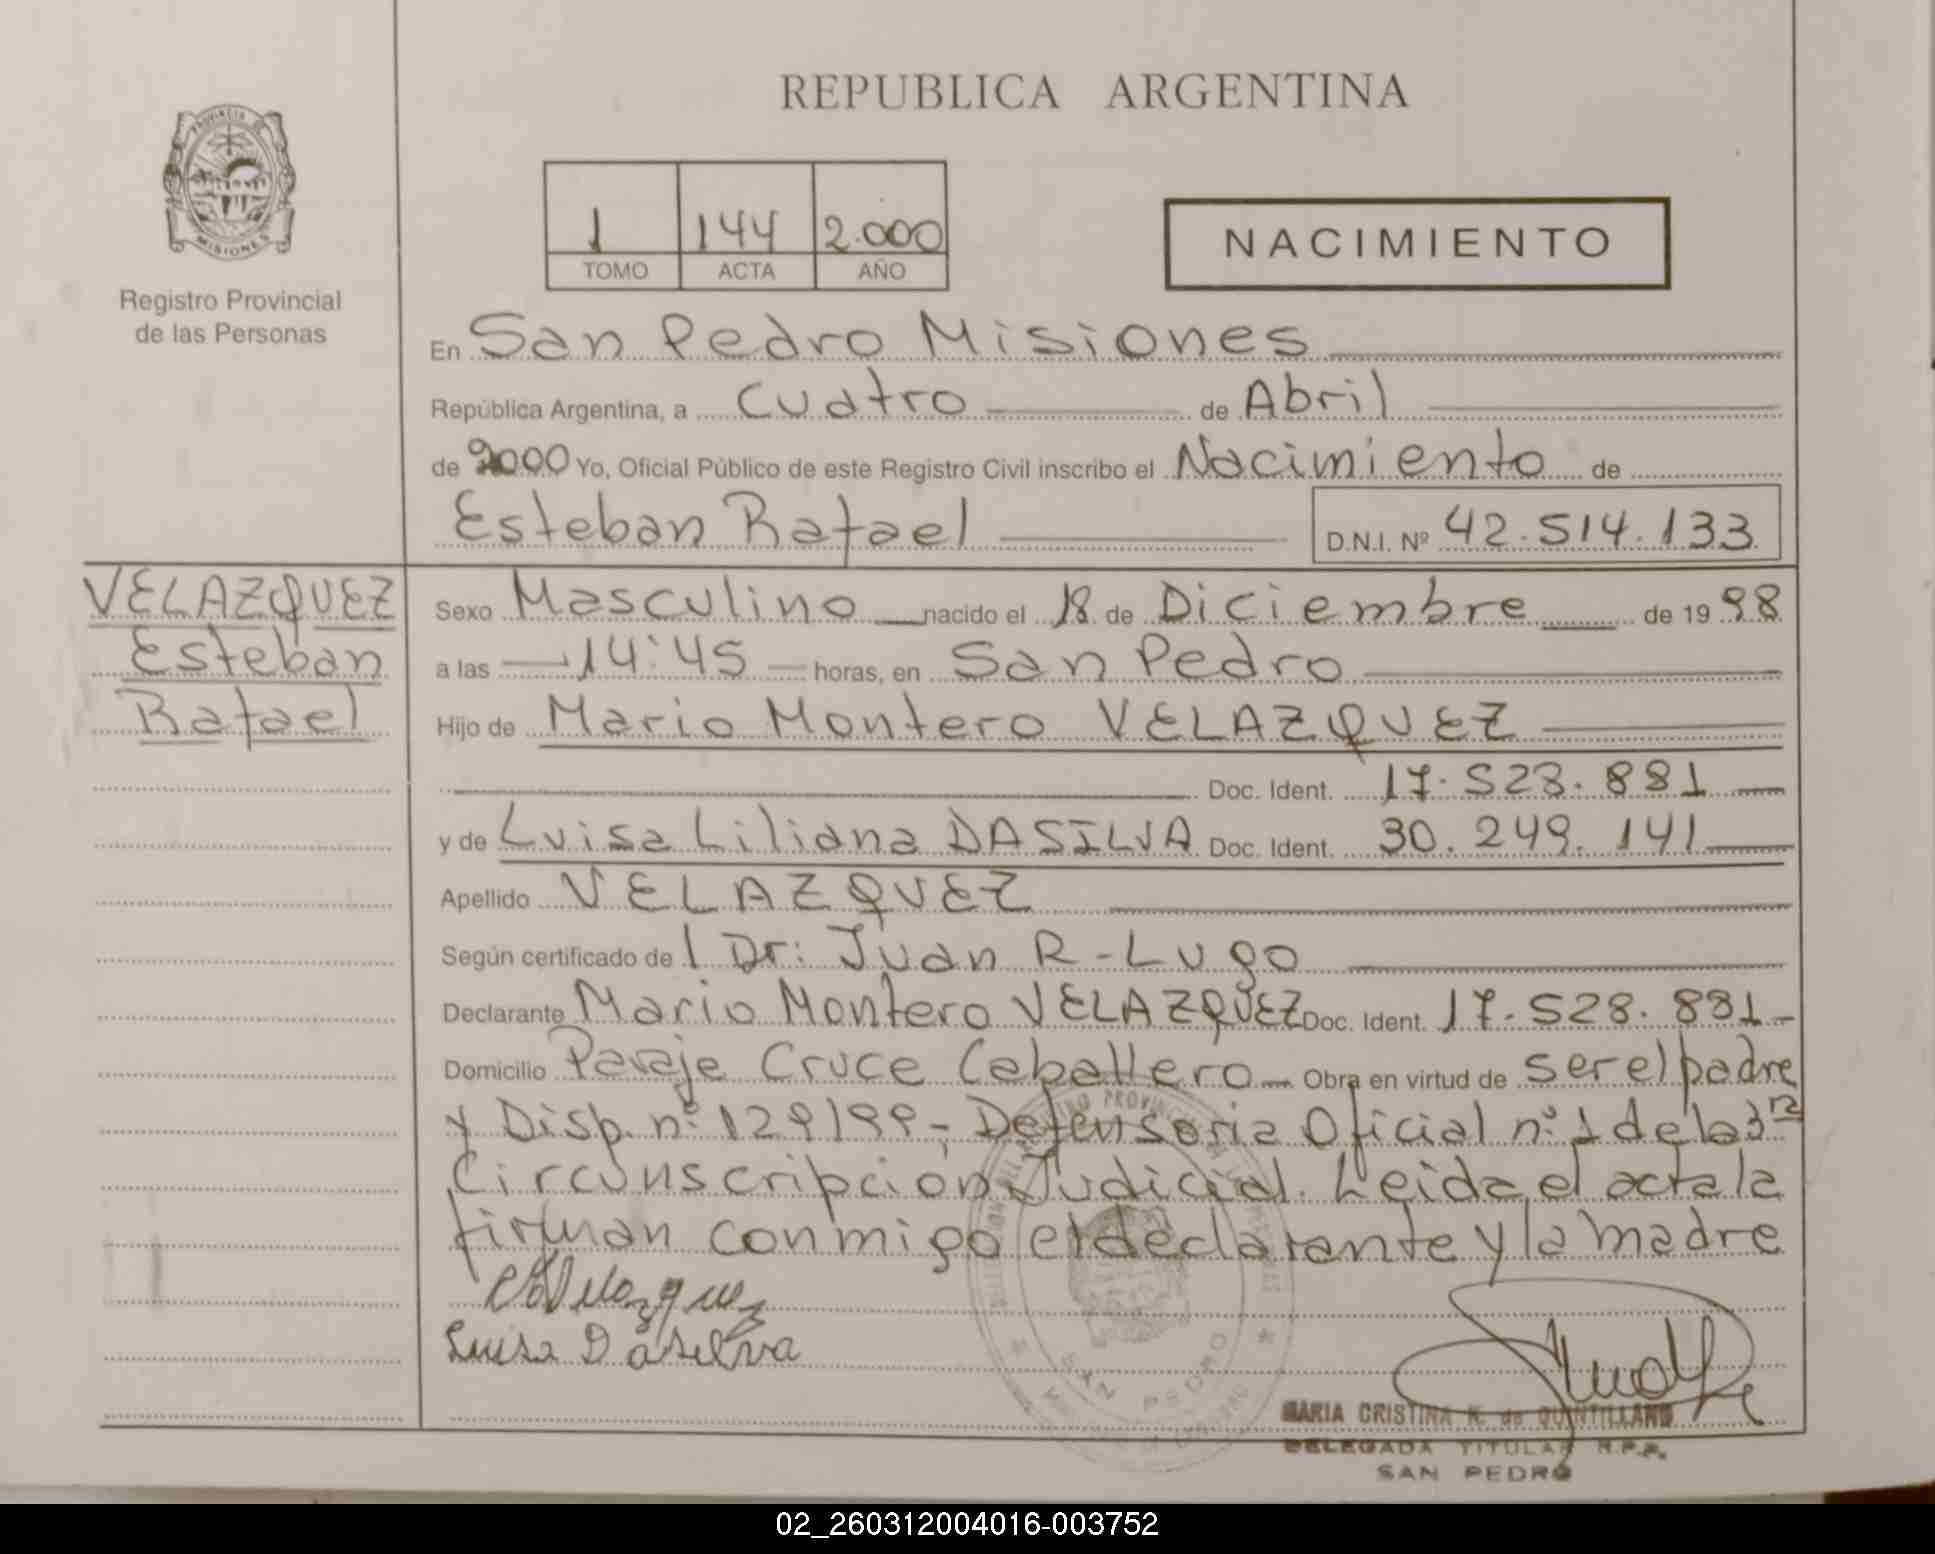 REPUBLICA ARGENTINA
PROVINCIA DE
MISIONES
Registro Provincial
de las Personas
1 144 2.000
TOMO ACTA AÑO
NACIMIENTO
En San Pedro Misiones
República Argentina, a Cuatro de Abril
de 2000 Yo, Oficial Público de este Registro Civil inscribo el Nacimiento de
Esteban Rafael D.N.I. Nº 42.514.133
VELAZQUEZ
Esteban
Rafael
Sexo Masculino nacido el 18 de Diciembre de 19 98
a las 14:45 horas, en San Pedro
Hijo de Mario Montero VELAZQUEZ
Doc. Ident. 17.528.881
y de Luisa Liliana DASILVA Doc. Ident. 30.249.141
Apellido VELAZQUEZ
Según certificado de l Dr: Juan R-Lugo
Declarante Mario Montero VELAZQUEZ Doc. Ident. 17.528.881
Domicilio Paraje Cruce Caballero Obra en virtud de ser el padre
y Disp. nº 129/99, Defensoria Oficial nº 1 de la 3ra
Circunscripción Judicial. Leida el acta la
firman conmigo el declarante y la madre
Velazquez
Luisa Dasilva
SAN PEDRO
MARIA CRISTINA N. de QUINTILLANO
DELEGADA TITULAR R.P.P.
SAN PEDRO
02_260312004016-003752